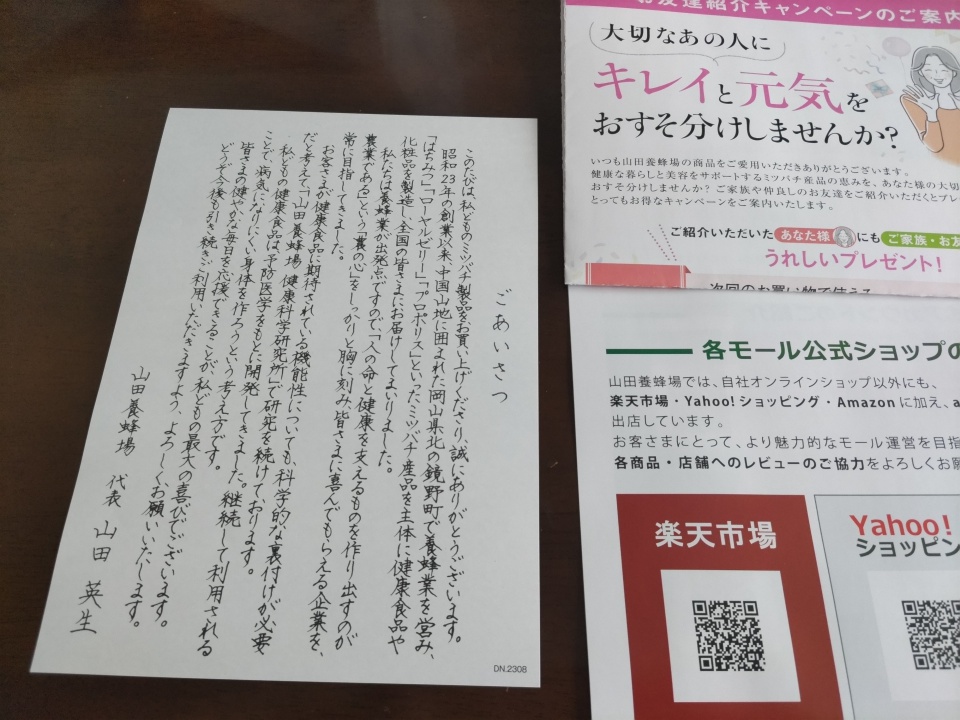 ごあいさつ
このたびは、私どものミツバチ製品をお買い上げくださり、誠にありがとうございます。
昭和23年の創業以来、中国山地に囲まれた岡山県北の鏡野町で養蜂業を営み、
「はちみつ」「ローヤルゼリー」「プロポリス」といったミツバチ産品を主体に健康食品や
化粧品を製造し、全国の皆さまにお届けしてまいりました。
私たちは養蜂業が出発点ですので、「人の命と健康を支えるものを作り出すのが
農業である」という「農の心」をしっかりと胸に刻み、皆さまに喜んでもらえる企業を、
常に目指してきました。
お客さまが健康食品に期待されている機能性についても、科学的な裏付けが必要
だと考えて「山田養蜂場 健康科学研究所」で研究を続けております。
私どもの健康食品は、予防医学をもとに開発してきました。継続して利用される
ことで、病気になりにくい身体を作ろうという考え方です。
皆さまの健やかな毎日を応援できることが、私どもの最大の喜びでございます。
どうぞ今後も引き続きご利用いただきますよう、よろしくお願いいたします。
山田養蜂場 代表 山田 英生
DN.2308
お友達紹介キャンペーンのご案内
大切なあの人に
キレイと元気を
おすそ分けしませんか?
いつも山田養蜂場の商品をご愛用いただきありがとうございます。
健康な暮らしと美容をサポートするミツバチ産品の恵みを、あなた様の大切
おすそ分けしませんか? ご家族や仲良しのお友達をご紹介いただくとプレ
とってもお得なキャンペーンをご案内いたします。
ご紹介いただいた あなた様 にも ご家族・お友
うれしいプレゼント!
次回のお買い物で使える
各モール公式ショップの
山田養蜂場では、自社オンラインショップ以外にも、
楽天市場・Yahoo!ショッピング・Amazonに加え、a
出店しています。
お客さまにとって、より魅力的なモール運営を目指
各商品・店舗へのレビューのご協力をよろしくお願
楽天市場
Yahoo!
ショッピン